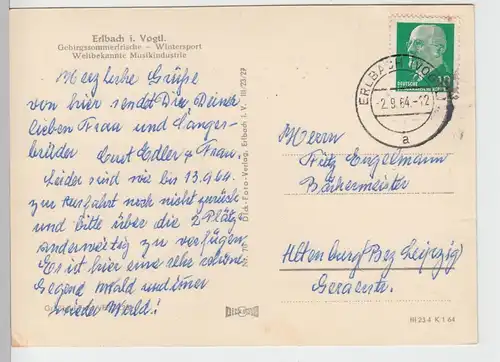 Erlbach i. Vogtl.
Gebirgssommerfrische – Wintersport
Weltbekannte Musikindustrie
Herzliche Grüße
von hier sendet Dir Deiner
lieben Frau und Sanges-
brüder Curt Edler u Frau.
Leider sind wir bis 13.9.64.
zur Ausfahrt noch nicht zurück
und bitte über die 2 Plätze
anderweitig zu verfügen.
Es ist hier eine sehr schöne
Gegend Wald und immer
wieder Wald!
Dick-Foto-Verlag, Erlbach i. V. III/23/29
ERLBACH (VOGTL)
-2.9.64.-12
a
DEUTSCHE
10
Herrn
Fritz Engelmann
Bäckermeister
Altenburg (Bez Leipzig)
Geraerstr.
III 23 4 K 1 64